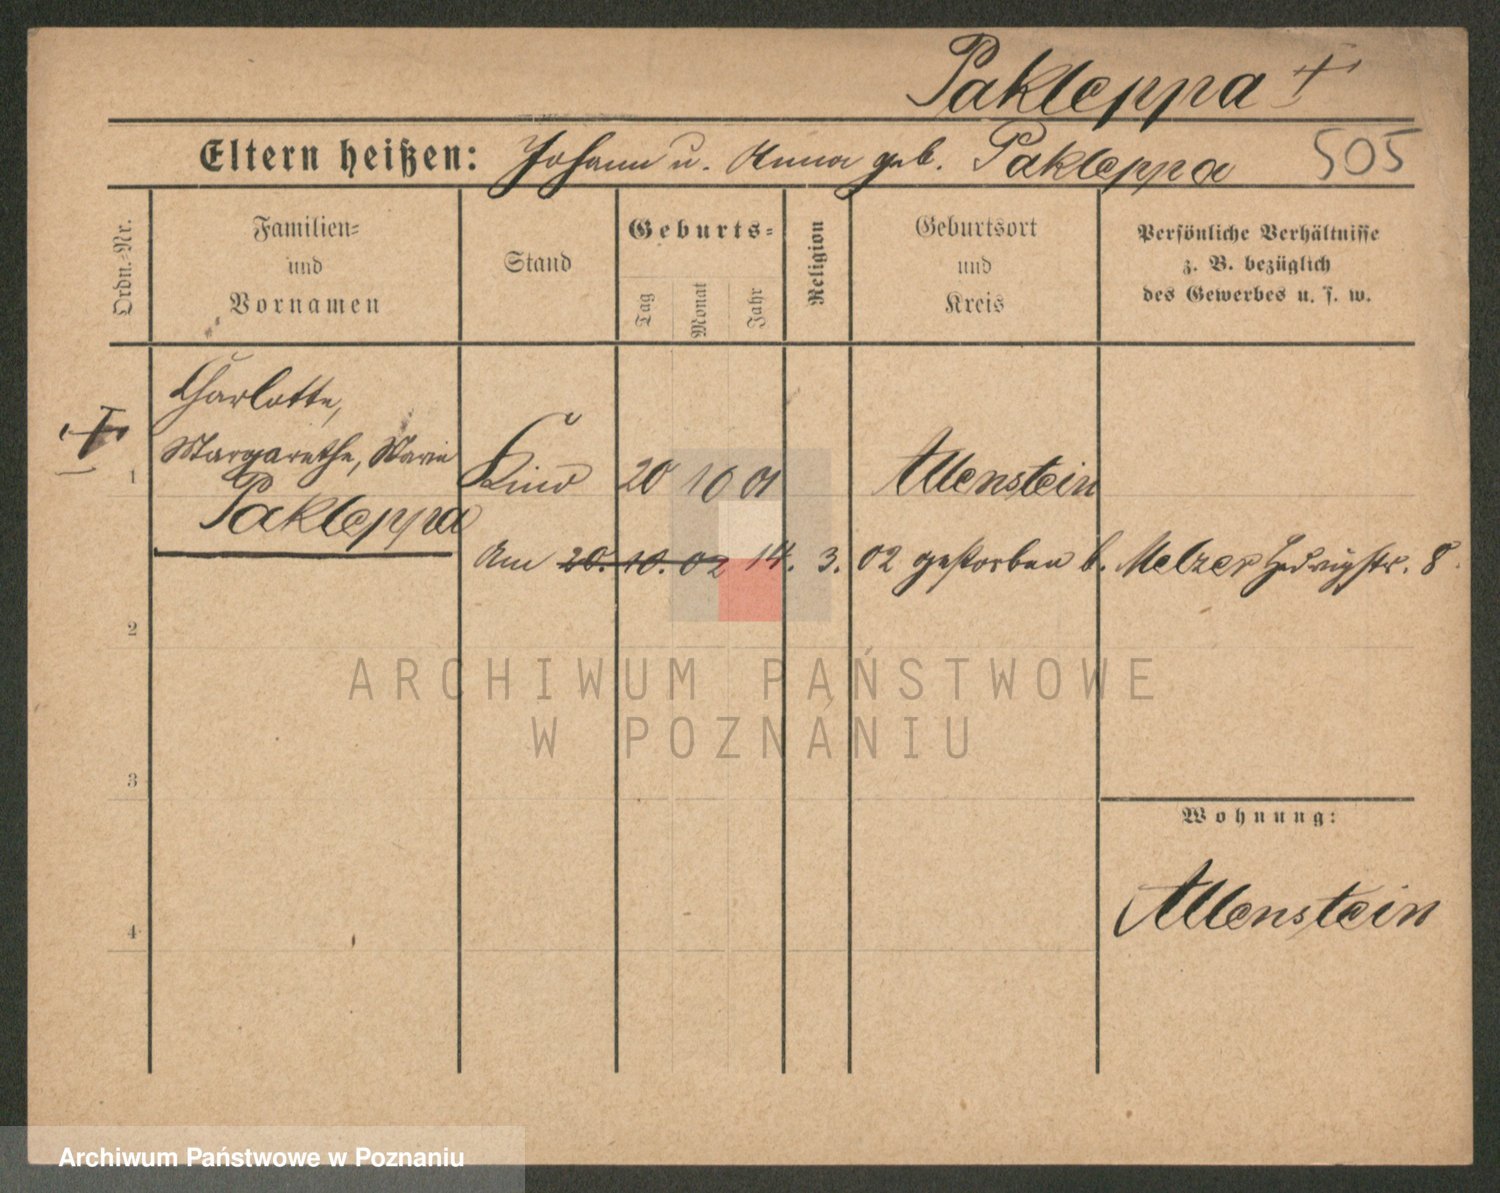 Pakleppa +
Eltern heißen: Johann u. Anna geb. Pakleppa 505
Ordn.-Nr.
Familien-
und
Vornamen
Stand
Geburts-
Tag
Monat
Jahr
Religion
Geburtsort
und
Kreis
Persönliche Verhältnisse
z. B. bezüglich
des Gewerbes u. s. w.
Charlotte,
+ Margarethe, Marie
1 Pakleppa
Kind 20 10 01 Allenstein
Am 20. 10. 02 14. 3. 02 gestorben b. Melzer Hedwigstr. 8.
2
ARCHIWUM PAŃSTWOWE
W POZNANIU
3
Wohnung:
Allenstein
4
Archiwum Państwowe w Poznaniu